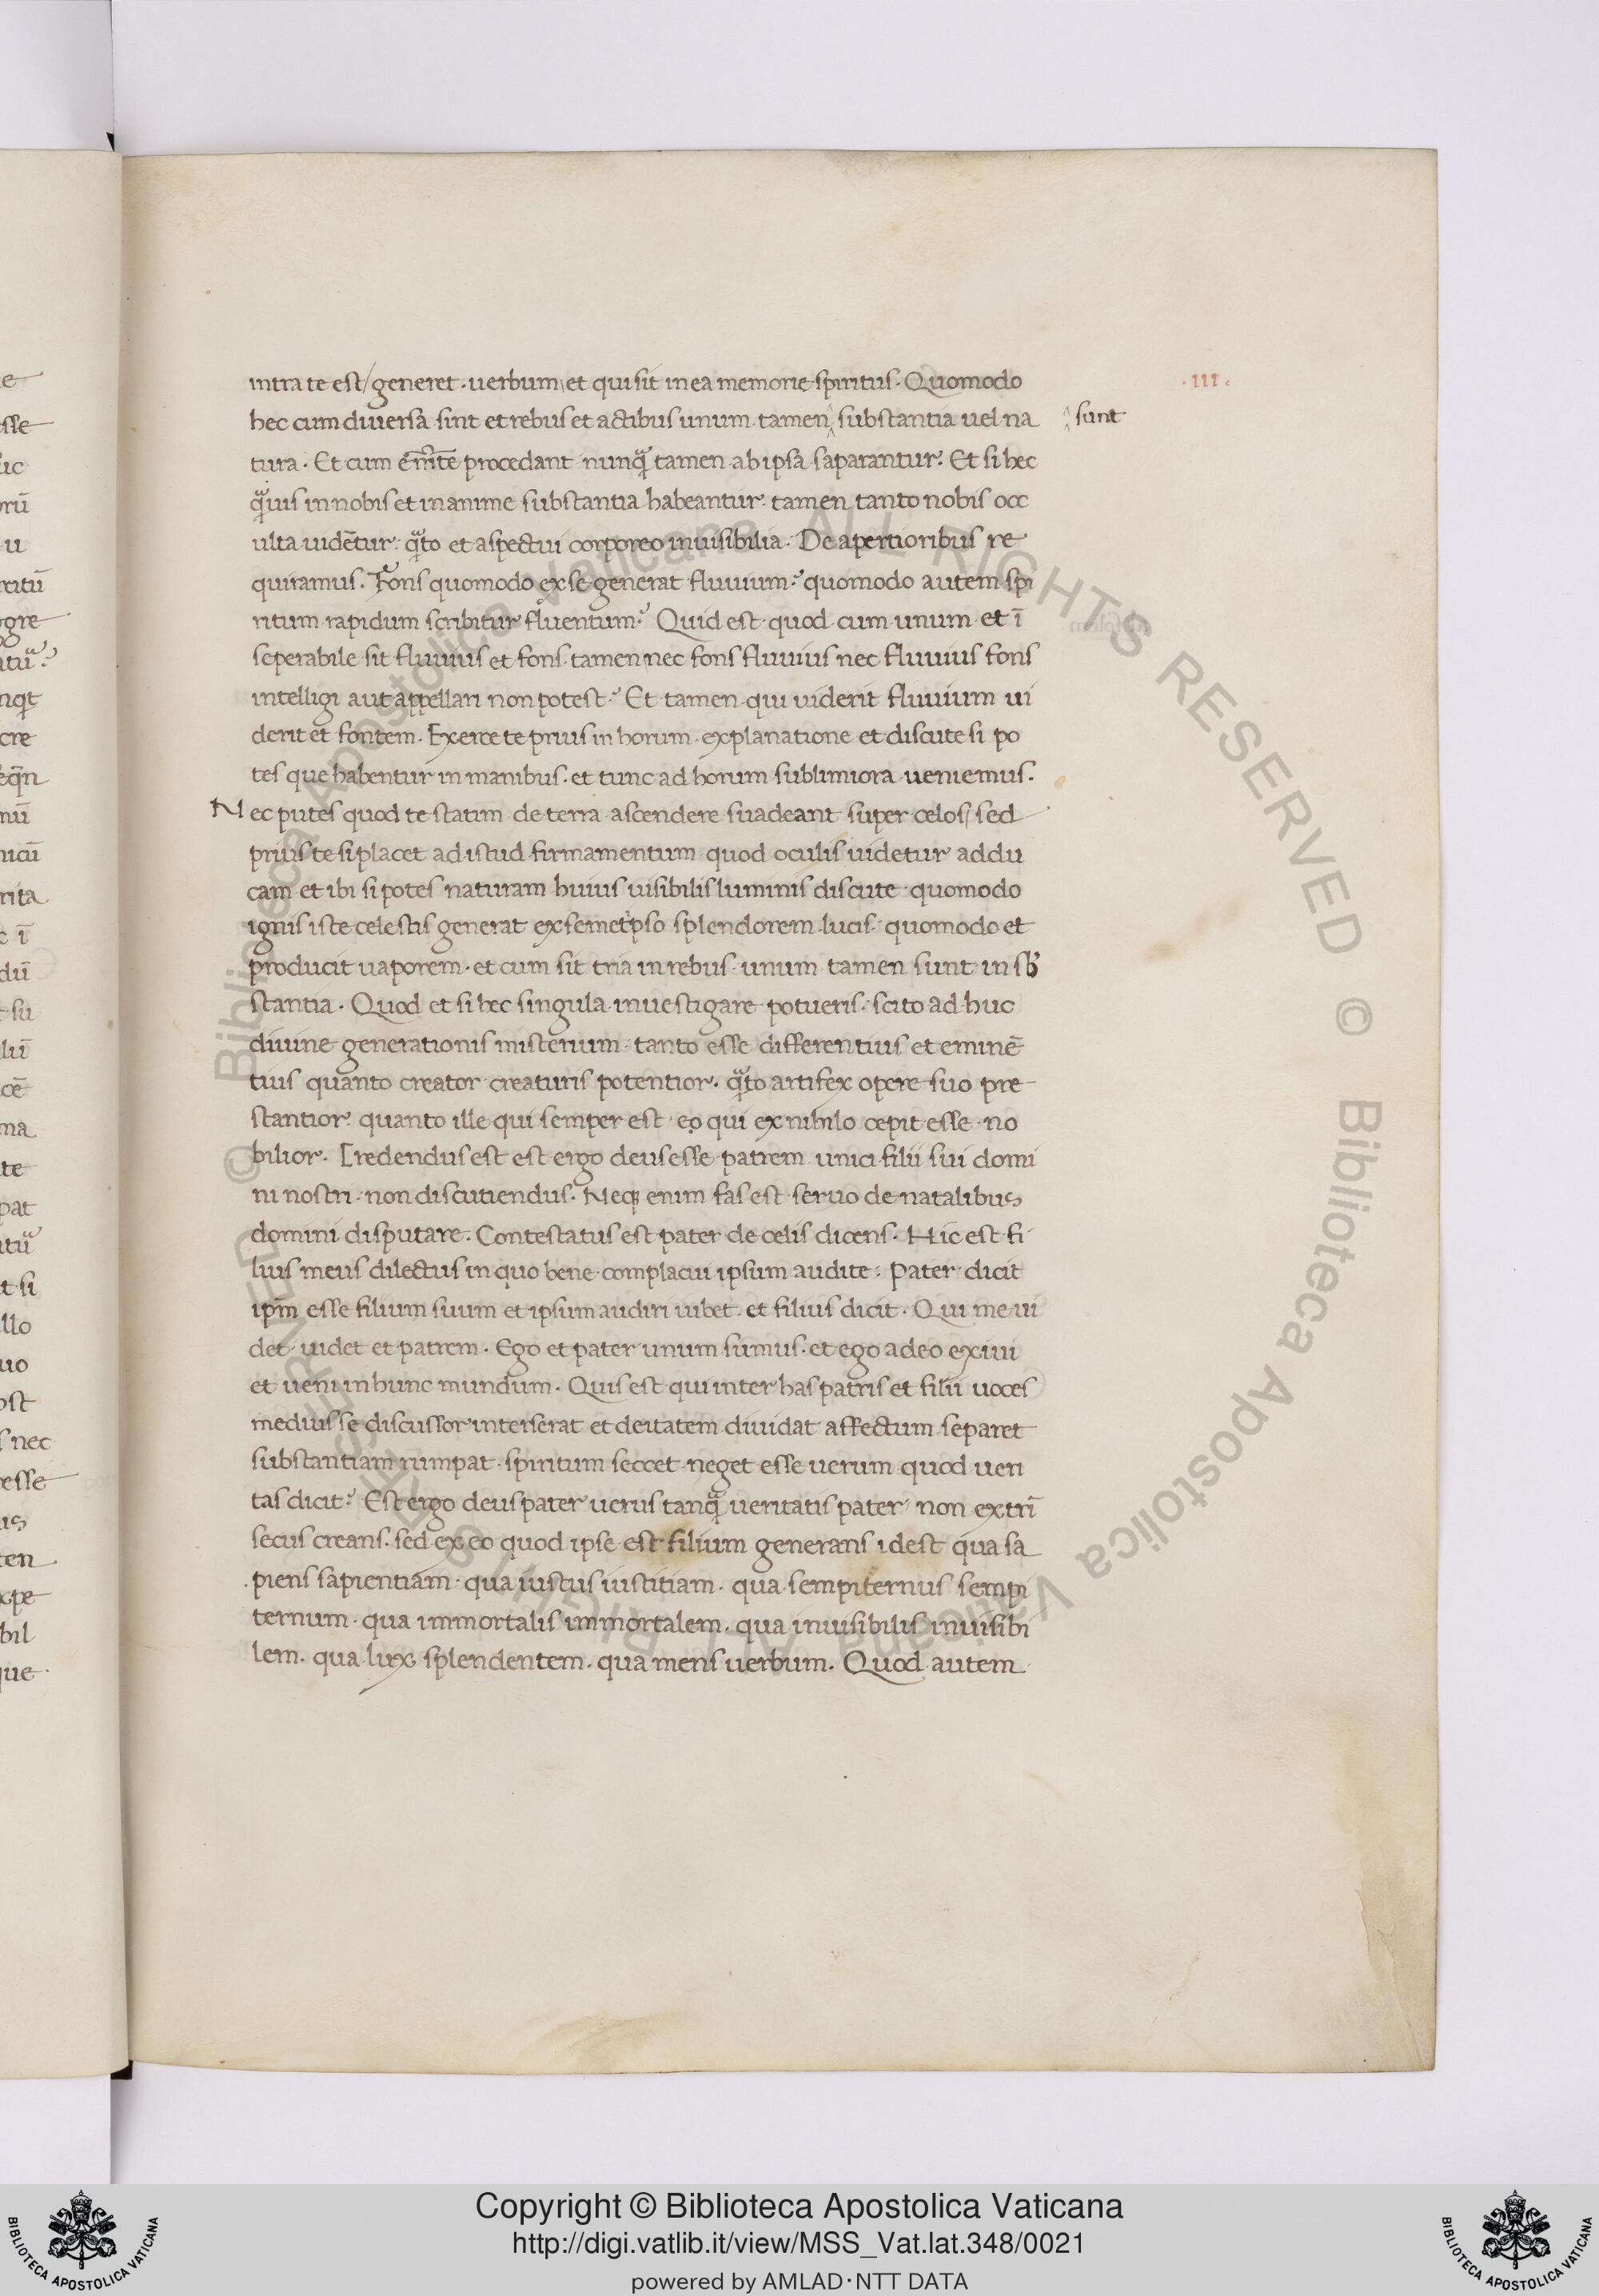 .III.
intra te est/ generet. uerbum, et qui sit in ea memorie spiritus. Quomodo
hec cum diuersa sint et rebus et actibus unum tamen substantia uel na
sunt
tura. Et cum em̄ītē procedant nunq̄ tamen ab ipsa saparantur. Et si hec
q̄uis in nobis et in anime substantia habeantur. tamen tanto nobis occ
ulta uidētur. q̄to et aspectui corporeo inuisibilia. De apertioribus re
quiramus. Fons quomodo ex se generat fluuium? quomodo autem spi
ritum rapidum scribitur fluentum? Quid est quod cum unum et ī
seperabile sit fluuius et fons. tamen nec fons fluuius nec fluuius fons
intelligi aut appellari non potest? Et tamen qui viderit fluuium ui
derit et fontem. Exerce te prius in horum explanatione et discute si po
tes que habentur in manibus. et tunc ad horum sublimiora ueniemus.
Nec putes quod te statim de terra ascendere suadeant super celos/ sed
prius te si placet ad istud firmamentum quod oculis uidetur addu
cam et ibi si potes naturam huius uisibilis luminis discute quomodo
ignis iste celestis generat ex semetipso splendorem lucis. quomodo et
producit uaporem. et cum sit tria in rebus. unum tamen sunt in sb
stantia. Quod et si hec singula inuestigare potueris. scito ad huc
diuine generationis misterium tanto esse differentius et eminē
tius quanto creator creaturis potentior. q̄to artifex opere suo pre
stantior. quanto ille qui semper est eo qui ex nihilo cepit esse no
bilior. Credendus est est ergo deus esse patrem unici filii sui domi
ni nostri. non discutiendus. Neq; enim fas est seruo de natalibus
domini disputare. Contestatus est pater de celis dicens. Hic est fi
lius meus dilectus in quo bene complacui ipsum audite: Pater dicit
ipm̄ esse filium suum et ipsum audiri iubet. et filius dicit. Qui me ui
det. uidet et patrem. Ego et pater unum sumus. et ego a deo exiui
et ueni in hunc mundum. Quis est qui inter has patris et filii uoces
medius se discussor interserat et deitatem diuidat affectum separet
substantiam rumpat. spiritum seccet neget esse uerum quod ueri
tas dicit? Est ergo deus pater uerus tanq̄ ueritatis pater non extrī
secus creans. sed ex eo quod ipse est filium generans idest qua sa
piens sapientiam. qua iustus iustitiam. qua sempiternus sempi
ternum. qua immortalis immortalem. qua inuisibilis inuisibi
lem. qua lux splendentem. qua mens uerbum. Quod autem
© Biblioteca Apostolica Vaticana ALL RIGHTS RESERVED © Biblioteca Apostolica Vaticana ALL RIGHTS RESERVED
Copyright © Biblioteca Apostolica Vaticana
http://digi.vatlib.it/view/MSS_Vat.lat.348/0021
powered by AMLAD·NTT DATA
BIBLIOTECA APOSTOLICA VATICANA
BIBLIOTECA APOSTOLICA VATICANA